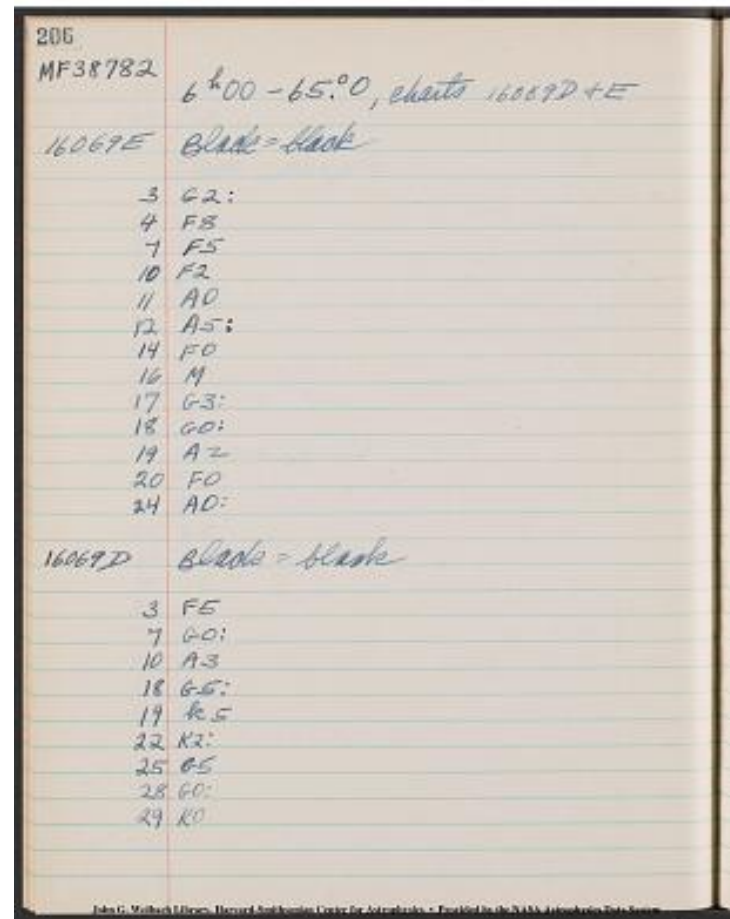 206
MF38782
6ʰ00 -65.°0, charts 16069D+E
16069E Black = black
3 G2:
4 F8
7 F5
10 F2
11 A0
12 A5:
14 F0
16 M
17 G3:
18 G0:
19 A2
20 F0
24 A0:
16069D Black = black
3 F5
7 G0:
10 A3
18 G5:
19 K5
22 K2:
25 G5
28 G0:
29 K0
John G. Wolbach Library, Harvard-Smithsonian Center for Astrophysics • Provided by the NASA Astrophysics Data System